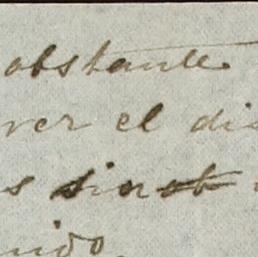 obstante
ver el di
s sin
nido